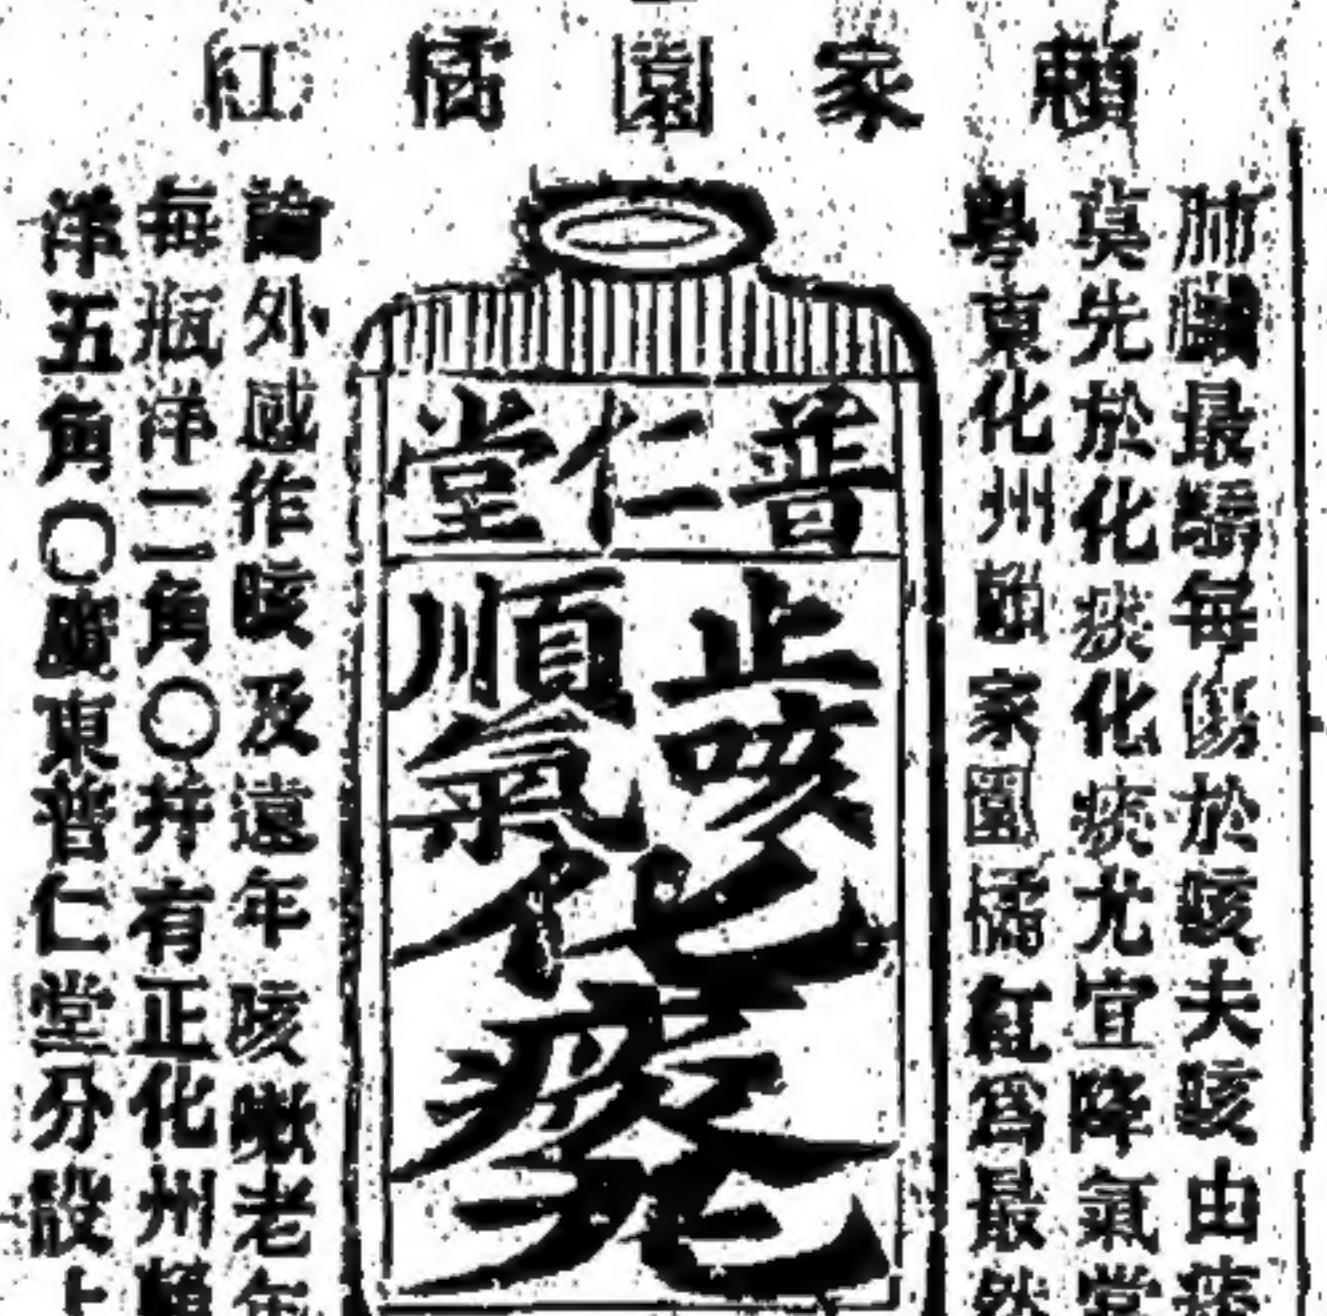 賴家園橘紅
肺臟最嬌每傷於咳夫咳由痰
莫先於化痰化痰尤宜降氣
粵東化州賴家園橘紅爲最
普仁堂
止咳
順氣
化痰
論外感作咳及遠年咳嗽老年
每瓶洋二角〇并有正化州賴
洋五角〇廣東普仁堂分設上